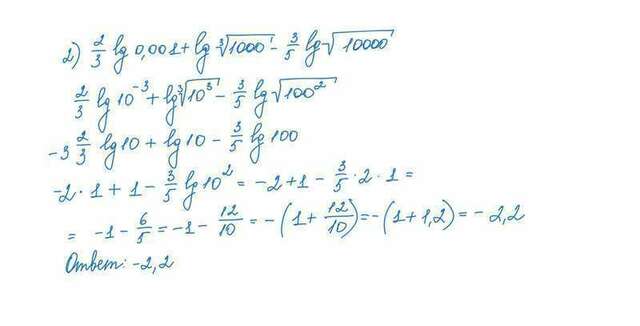 2) 2/3 lg 0,001 + lg ∛1000 - 3/5 lg √10000
2/3 lg 10⁻³ + lg ∛10³ - 3/5 lg √100²
-3 2/3 lg 10 + lg 10 - 3/5 lg 100
-2 · 1 + 1 - 3/5 lg 10² = -2 + 1 - 3/5 · 2 · 1 =
= -1 - 6/5 = -1 - 12/10 = -(1 + 12/10) = -(1 + 1,2) = - 2,2
Ответ: -2,2